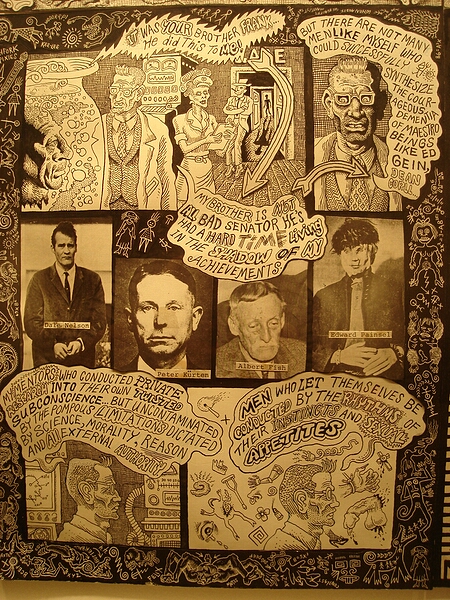 IT WAS YOUR BROTHER FRANK...
He did THIS TO ME!
BUT THERE ARE NOT MANY
MEN LIKE MYSELF WHO
COULD SUCCESSFULLY
SYNTHESIZE
THE COUR-
AGEOUS
DEMENTIA
OF MAESTRO
BEINGS
LIKE ED
GEIN,
DEAN
MY BROTHER IS NOT
A BAD SENATOR HE'S
HAD A HARD TIME LIVING
IN THE SHADOW OF MY
ACHIEVEMENTS
Dale Nelson
Peter Kurten
Albert Fish
Edward Paisnel
MY MENTORS WHO CONDUCTED PRIVATE
RESEARCH INTO THEIR OWN TWISTED
SUBCONSCIENCE. BUT UNCONTAMINATED
BY THE POMPOUS LIMITATIONS DICTATED
BY SCIENCE, MORALITY, REASON
AND AN EXTERNAL AUTHORITY!
MEN WHO LET THEMSELVES BE
CONDUCTED BY THE RHYTHMS OF
THEIR INSTINCTS AND SEXUAL
APPETITES